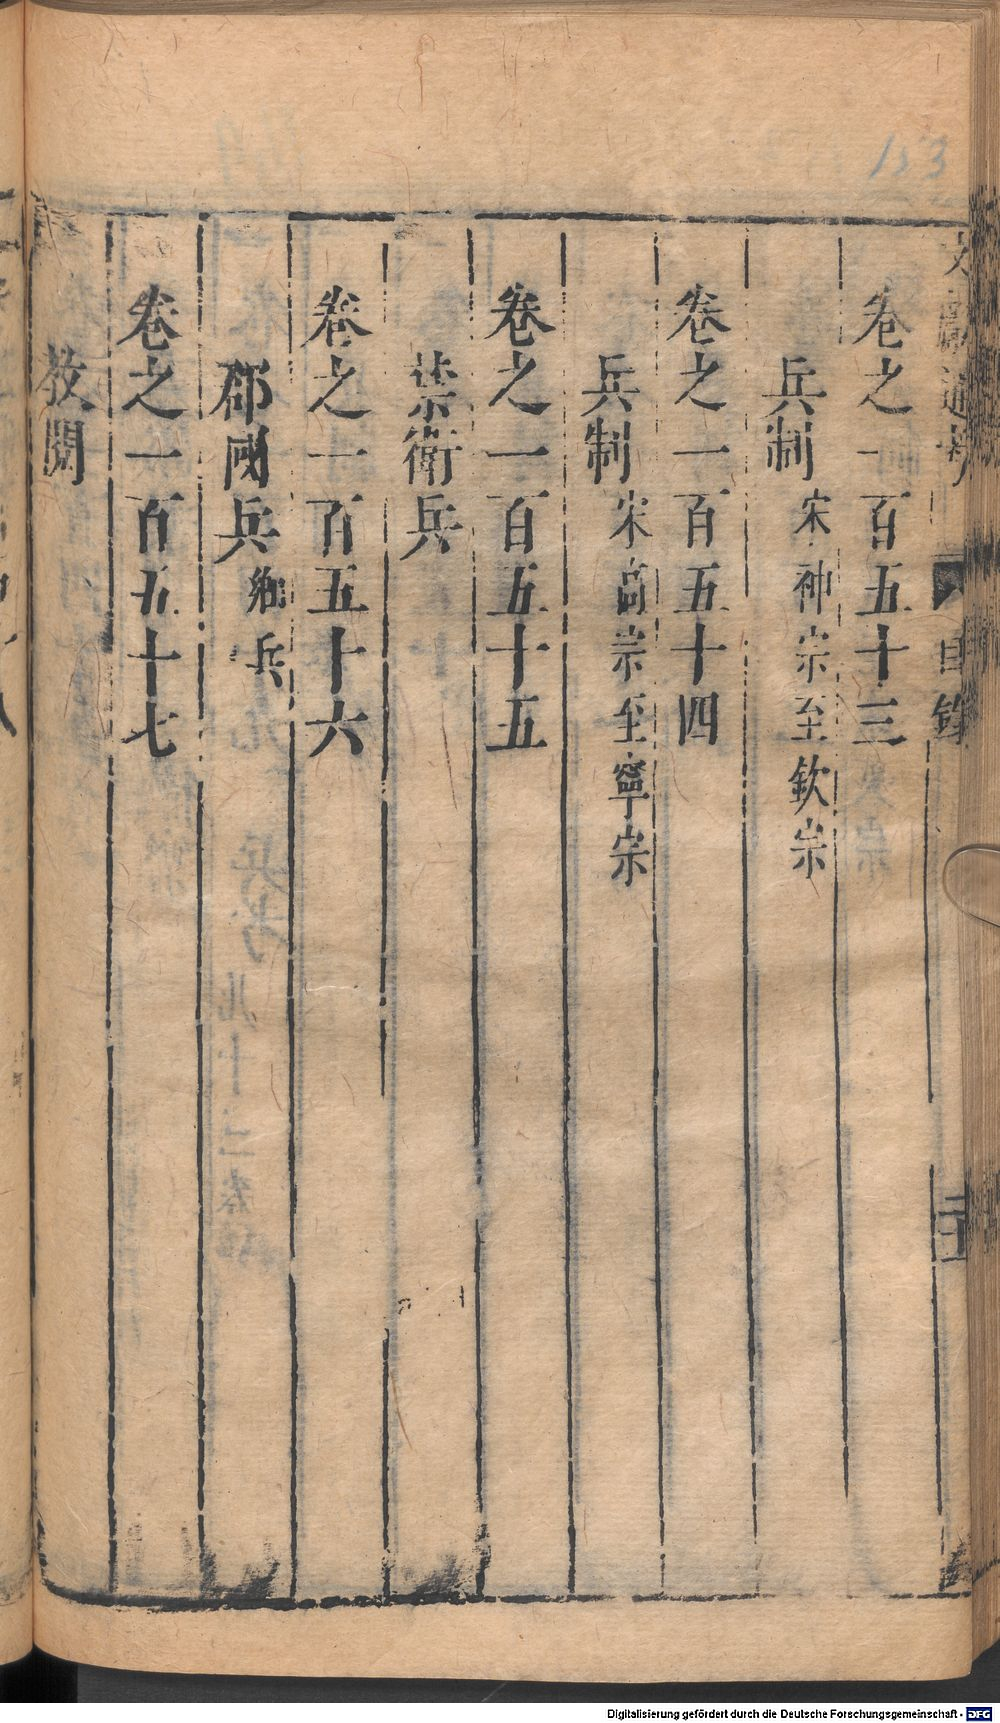 文獻通考 目錄
卷之一百五十三
兵制 宋神宗至欽宗
卷之一百五十四
兵制 宋高宗至寧宗
卷之一百五十五
禁衛兵
卷之一百五十六
郡國兵 鄉兵
卷之一百五十七
教閱
153
Digitalisierung gefördert durch die Deutsche Forschungsgemeinschaft - DFG